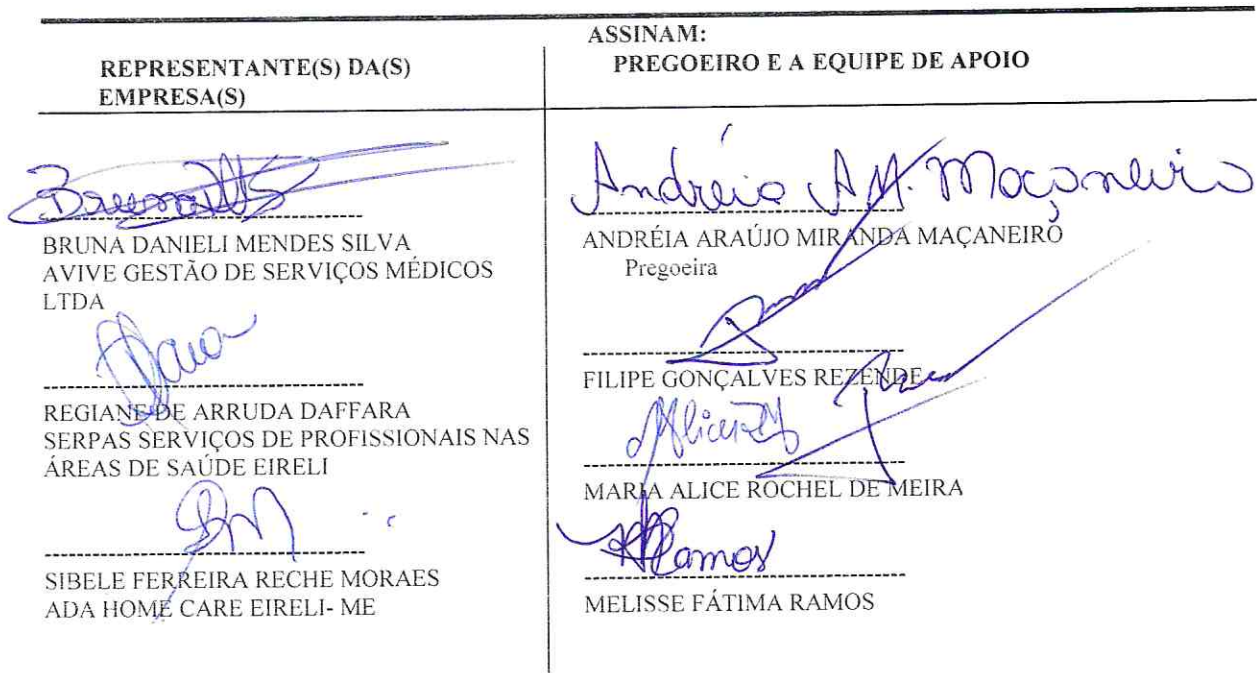 ASSINAM:
REPRESENTANTE(S) DA(S)
EMPRESA(S)
PREGOEIRO E A EQUIPE DE APOIO
BRUNA DANIELI MENDES SILVA
AVIVE GESTÃO DE SERVIÇOS MÉDICOS
LTDA
REGIANE DE ARRUDA DAFFARA
SERPAS SERVIÇOS DE PROFISSIONAIS NAS
ÁREAS DE SAÚDE EIRELI
SIBELE FERREIRA RECHE MORAES
ADA HOME CARE EIRELI- ME
Andréia A. M. Maçaneiro
ANDRÉIA ARAÚJO MIRANDA MAÇANEIRO
Pregoeira
FILIPE GONÇALVES REZENDE
MARIA ALICE ROCHEL DE MEIRA
Ramos
MELISSE FÁTIMA RAMOS